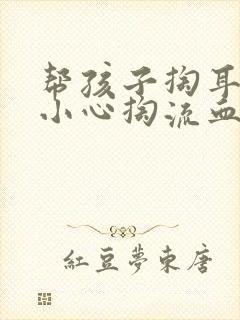 帮孩子掏耳
小心掏流血
红豆夢東唐